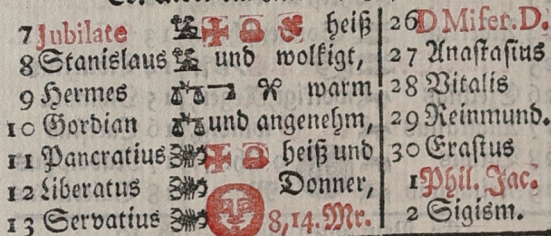 7 Jubilate heiß 26 D Miser. D.
8 Stanislaus und wolkigt, 27 Anastasius
9 Hermes warm 28 Vitalis
10 Gordian und angenehm, 29 Reinmund.
11 Pancratius heiß und 30 Erastus
12 Liberatus Donner, 1 Phil. Jac.
13 Servatius 8,14. Mr. 2 Sigism.